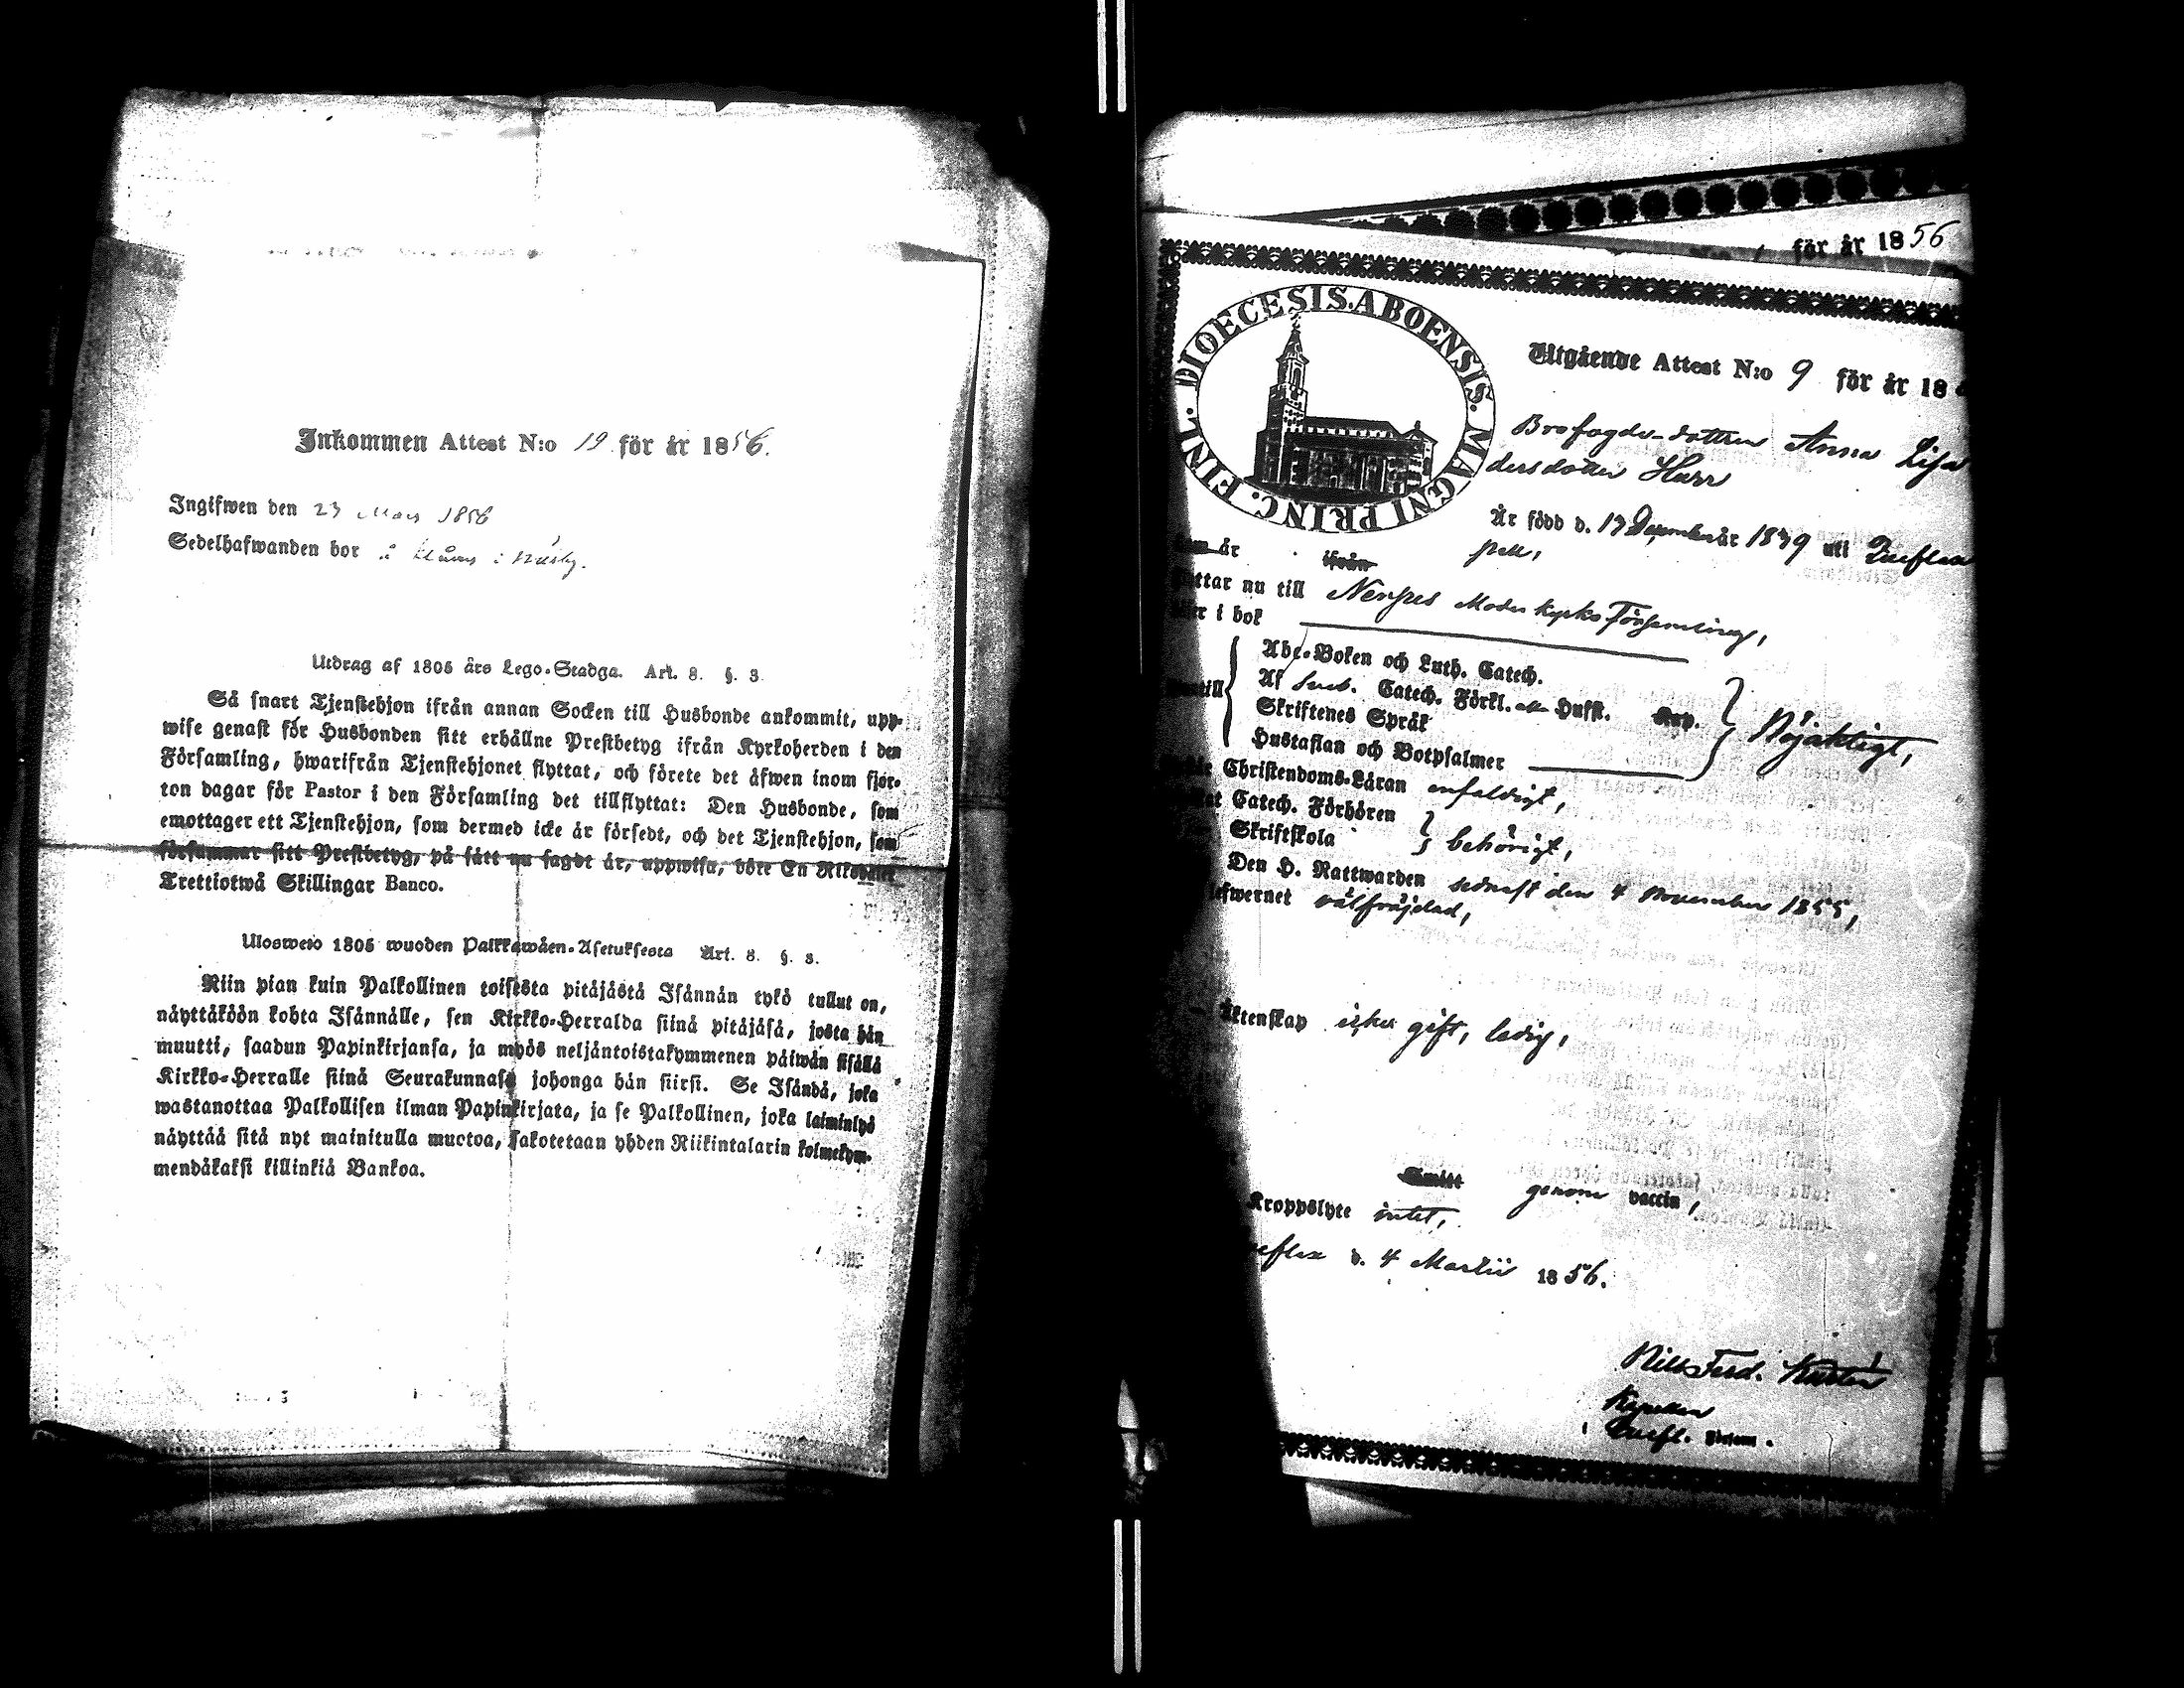 Inkommen Attest N:o 19 för år 1856.
Ingifwen den 23 Mars 1856
Sedelhafwanden bor å i Näsby.
Utdrag af 1805 års Lego-Stadga. Art. 8. §. 3
Så snart Tjenstehjon ifrån annan Socken till Husbonde ankommit, upp-
wise genast för Husbonden sitt erhållne Prestbetyg ifrån Kyrkoherden i den
Församling, hwarifrån Tjenstehjonet flyttat, och förete det äfwen inom fjor-
ton dagar för Pastor i den Församling det tillflyttat: Den Husbonde, som
emottager ett Tjenstehjon, som dermed icke är försedt, och det Tjenstehjon, som
försummar sitt Prestbetyg, på sätt nu sagdt är, uppwisa, böte En Riksdaler
Trettiotwå Skillingar Banco.
Ulosweto 1805 wuoden Palkkawäen-Asetuksesta Art. 8. §. 3.
Niin pian kuin Palkollinen toisesta pitäjästä Isännän tykö tullut on,
näyttäköön kohta Isännälle, sen Kirkko-Herralda siinä pitäjäsä, josta hän
muutti, saadun Papinkirjansa, ja myös neljäntoistakymmenen päiwän sisällä
Kirkko-Herralle siinä Seurakunnasa johonga hän siirsi. Se Isändä, joka
wastanottaa Palkollisen ilman Papinkirjata, ja se Palkollinen, joka laiminlyö
näyttää sitä nyt mainitulla muotoa, sakotetaan yhden Riikintalarin kolmekym-
mendäkaksi killinkiä Bankoa.
för år 1856
DIOECESIS ABOENSIS. MAGNI PRINC. FINL.
Utgående Attest N:o 9 för år 18
Brofogde-dottren Anna Lisa
dersdotter Harr
Är född d. 17 December år 1839 uti Quefla
år ifrån pell,
ttar nu till Nerpes Moderkyrko Församling,
i bok
Abc-Boken och Luth. Catech.
Af Sveb. Catech. Förkl. Huſſt. Kap.
Skriftenes Språk
Hustaflan och Botpsalmer
Nöjaktigt,
Christendoms-Läran enfaldigt,
Catech. Förhören
Skriftskola
behörigt,
Den H. Nattwarden sednast den 4 November 1855,
fwernet välfräjdad,
Äktenskap icke gift, ledig,
Smitt genom vaccin,
Kroppslyte intet,
eflax d. 4 Martii 1856.
Nils Ferd.
Quefl.